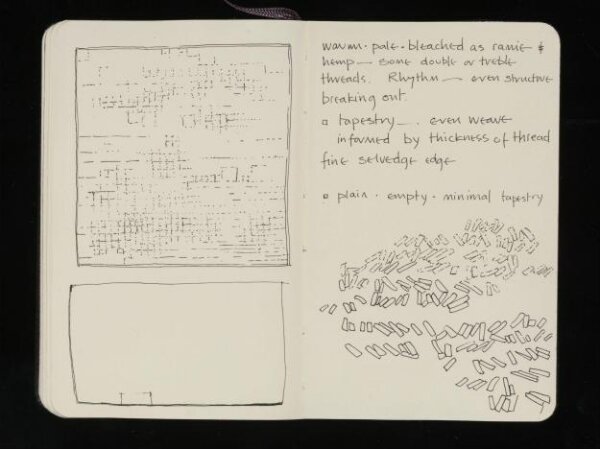 warm · pale · bleached as ramie &
hemp — some double or treble
threads. Rhythm — even structure
breaking out.
□ tapestry — . even weave
informed by thickness of thread
fine selvedge edge
□ plain · empty · minimal tapestry